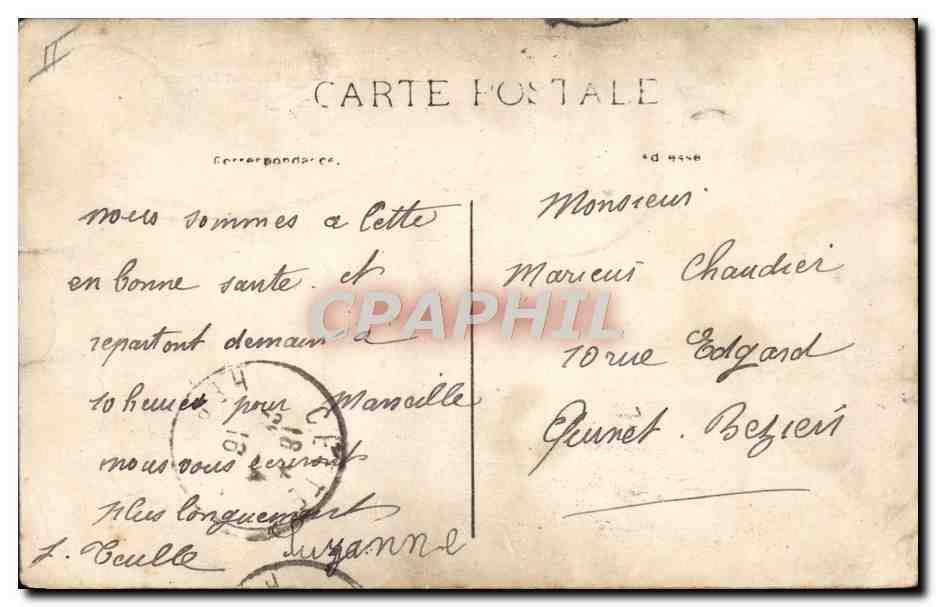 II
CARTE POSTALE
Correspondance.
Adresse
nous sommes a Cette
en bonne sante. et
repartont demain a
10 heures pour Marseille
nous vous ecriront
plus longuement
Suzanne
Monsieur
Marieus Chaudier
10 rue Edgard
Quinet. Beziers
CETTE
CPAPHIL